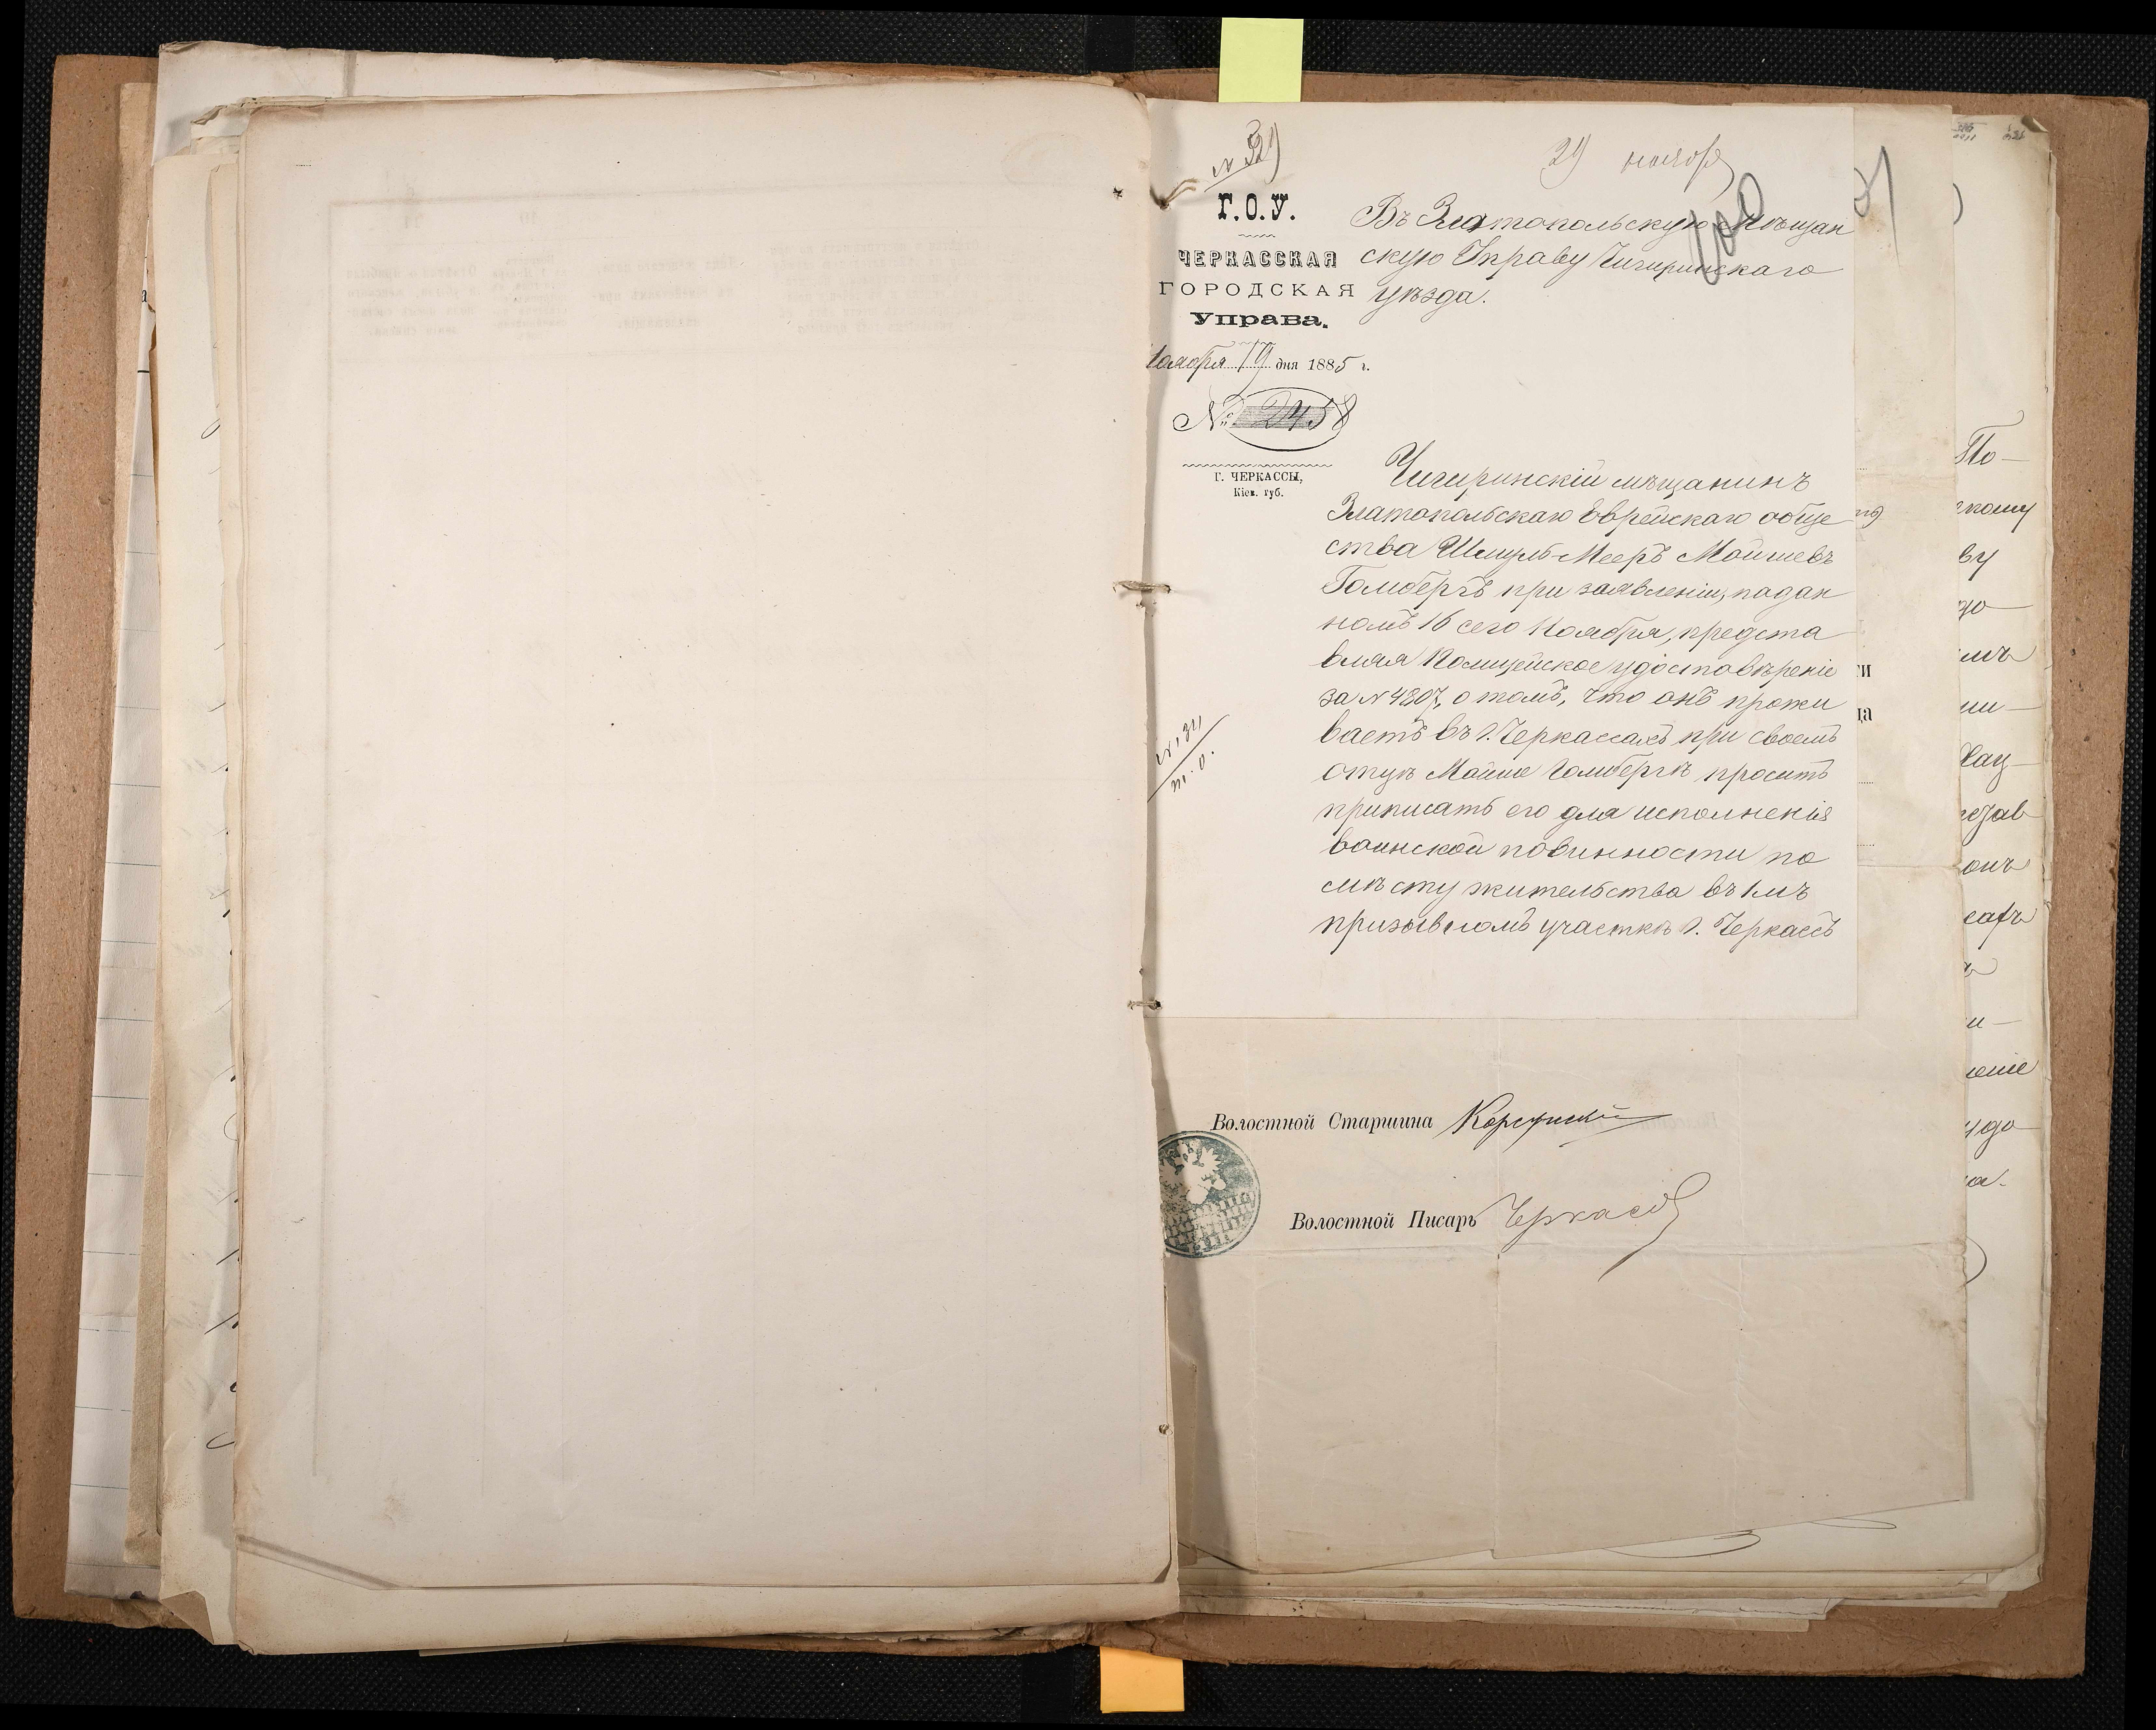 № 329
29 ноября
400
Г.О.У.
ЧЕРКАССКАЯ
ГОРОДСКАЯ
Управа.
Ноября 19 дня 1885 г.
№ 2458
Г. ЧЕРКАССЫ,
Кіев. губ.
Въ Златопольскую Мѣщан
скую Управу Чигиринскаго
уѣзда.
Чигиринскій мѣщанинъ
Златопольскаго Еврейскаго обще
ства Шмуль-Мееръ Мойшевъ
Гомбергъ при заявленіи, подан
номъ 16 сего Ноября, предста
вляя Полицейское удостовѣреніе
за № 4807, о томъ, что онъ прожи
ваетъ въ г. Черкассахъ при своемъ
отцѣ Мойше Гомбергѣ проситъ
приписать его для исполненія
воинской повинности по
мѣсту жительства въ 1мъ
призывномъ участкѣ г. Черкассъ
Волостной Старшина
Волостной Писарь Черкасов